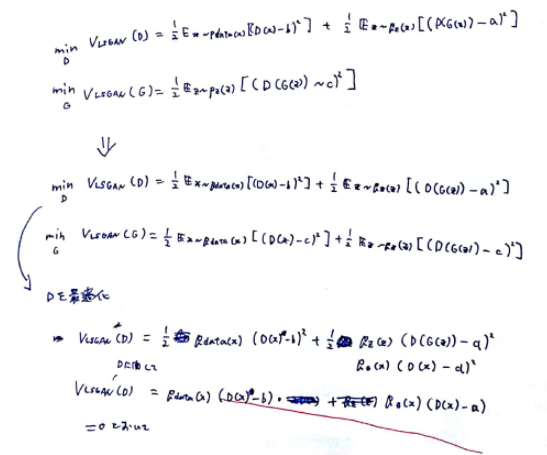 min_D V_LSGAN (D) = 1/2 E_x~pdata(x) [(D(x)-b)²] + 1/2 E_z~pz(z) [(D(G(z))-a)²]
min_G V_LSGAN (G) = 1/2 E_z~pz(z) [(D(G(z))~c)²]
⇓
min_D V_LSGAN (D) = 1/2 E_x~pdata(x) [(D(x)-b)²] + 1/2 E_z~pz(z) [(D(G(z))-a)²]
min_G V_LSGAN (G) = 1/2 E_x~pdata(x) [(D(x)-c)²] + 1/2 E_z~pz(z) [(D(G(z))-c)²]
Dを最適化
V_LSGAN (D) = 1/2 pdata(x) (D(x)-b)² + 1/2 pz(z) (D(G(z))-a)²
pg(x) (D(x)-a)²
V_LSGAN' (D) = pdata(x) (D(x)-b) + pg(x) (D(x)-a)
=0 とおいて